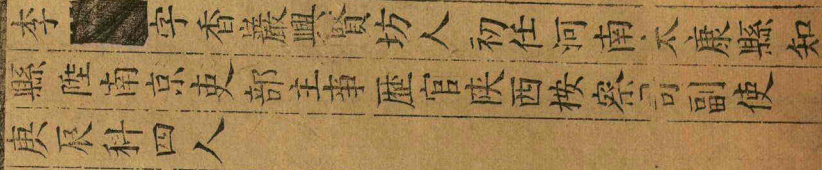 李 字香巖興賢坊人初任河南太康縣知
縣陞南京吏部主事歷官陝西按察司副使
庚辰科四人